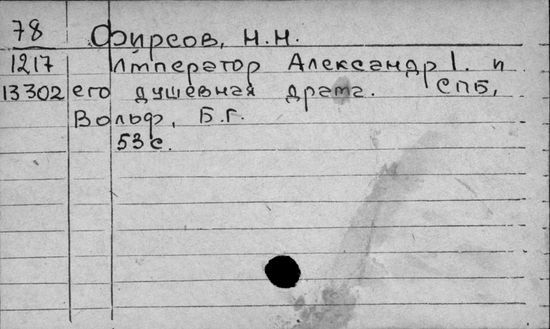 78 Фирсов, Н.Н.
1217 Император Александр I. и
13302 его душевная драма. СПБ,
Вольф, Б.Г.
53 с.